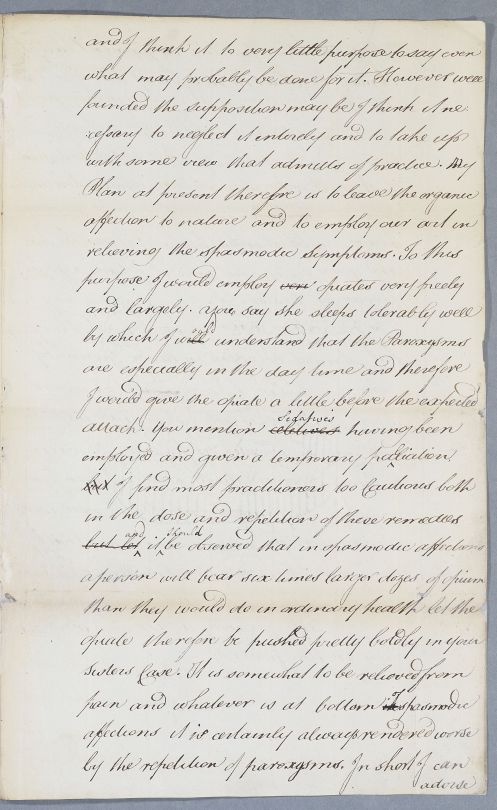 and I think it to very little purpose to say even
what may probably be done for it. However well
founded the supposition may be I think it ne
:cessary to neglect it intirely and to take up
with some view that admitts of practice. My
Plan at present therefore is to leave the organic
affection to nature and to employ our art in
relieving the spasmodic Symptoms. To this
purpose I would employ very opiates very freely
and largely. You say she sleeps tolerably well
by which I will understand that the Paroxysms
are especially in the day time and therefore
I would give the opiate a little before the expected
attack. You mention Sedatives having been
employed and given a temporary palliation
but I find most practitioners too Cautious both
in the dose and repetition of these remedies
but let and it should be observed that in spasmodic affections
a person will bear six times larger dozes of opium
than they would do in ordinary health let the
opiate therefore be pushed pretty boldly in your
Sisters Case. It is somewhat to be relieved from
pain and whatever is at bottom the of spasmodic
affections it is certainly always rendered worse
by the repetition of paroxysms. In short I can
advise